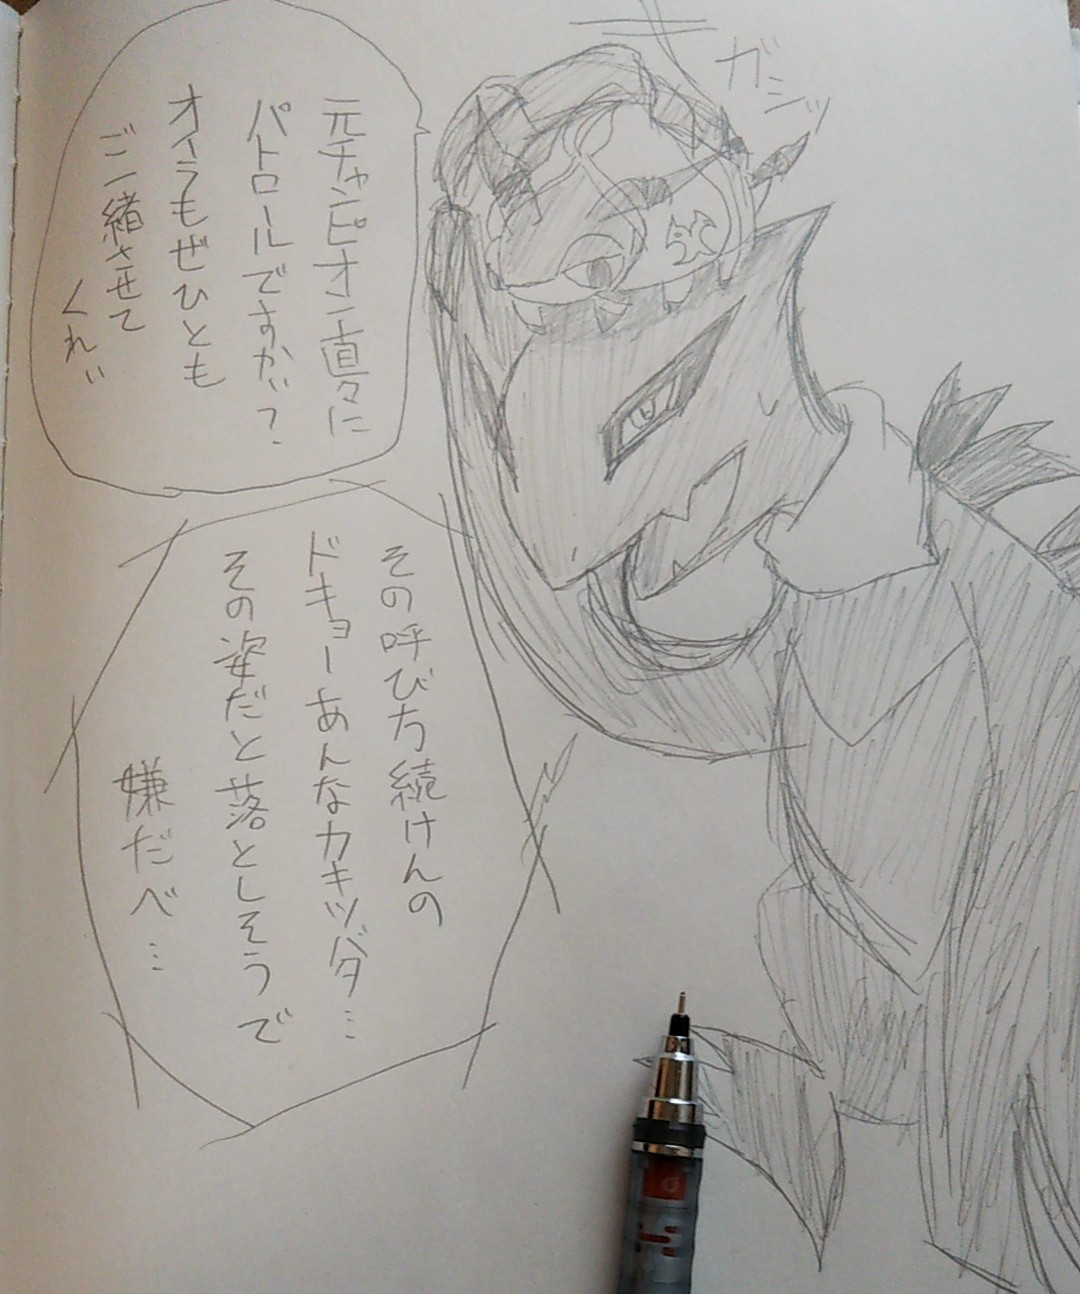 ガジッ
元チャンピオン直々に
パトロールですかい?
オイラもぜひとも
ご一緒させて
くれい
その呼び方続けんの
ドキョーあんなカキツバタ…
その姿だと落としそうで
嫌だべ…